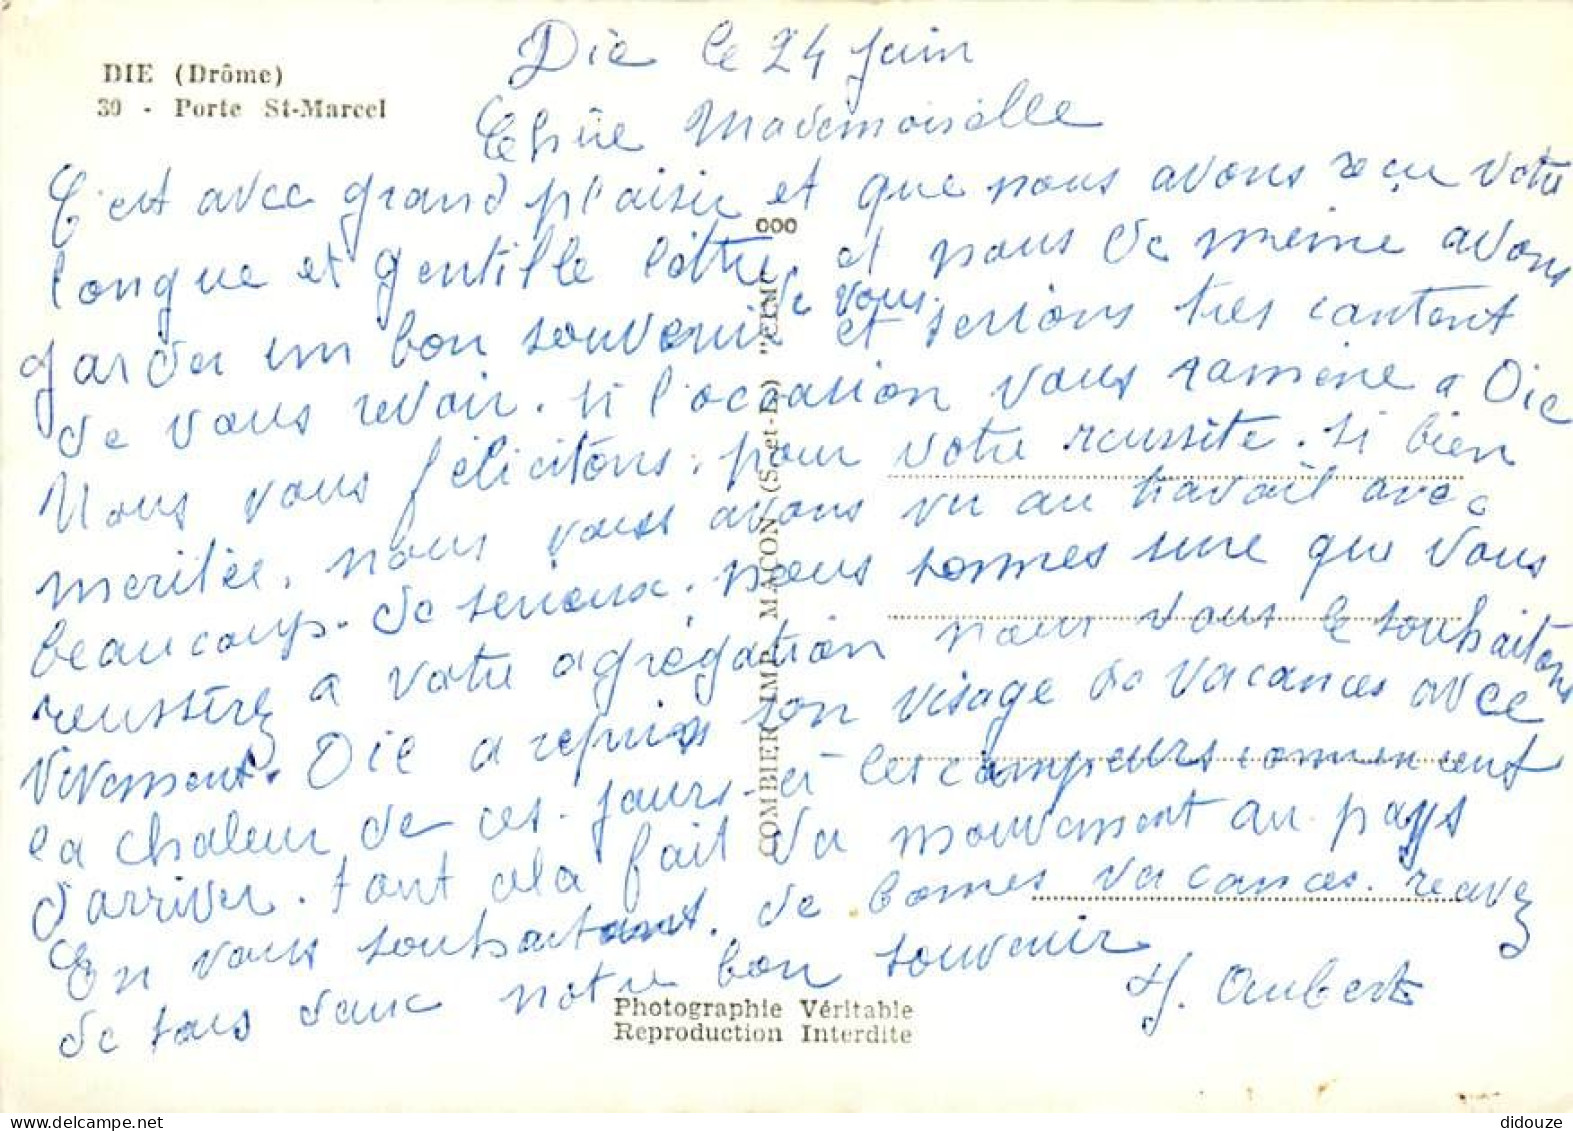 DIE (Drôme)
30 - Porte St-Marcel
Die le 24 Juin
Chère Mademoiselle
C'est avec grand plaisir et que nous avons reçu votre
longue et gentille lettre, et nous de même avons
garder un bon souvenir de vous.
et serions tres content
de vous revoir. si l'occasion vous ramène a Die
Nous vous félicitons, pour votre reussite. si bien
meritée, nous vous avons vu au travail avec
beaucoup. de serieux. nous sommes sure que vous
reussirez a votre agrégation nous vous le souhaitons
vivement. Die a repris son visage de vacances avec
la chaleur de ces. jours. et les campeurs commencent
d'arriver. tout cela fait du mouvement au pays
En vous souhaitant. de bonnes vacances. recevez
de tous deux notre bon souvenir
H. Aubert
COMBIER IMP. MACON (S.-et-L.) "CIM"
000
Photographie Véritable
Reproduction Interdite
didouze